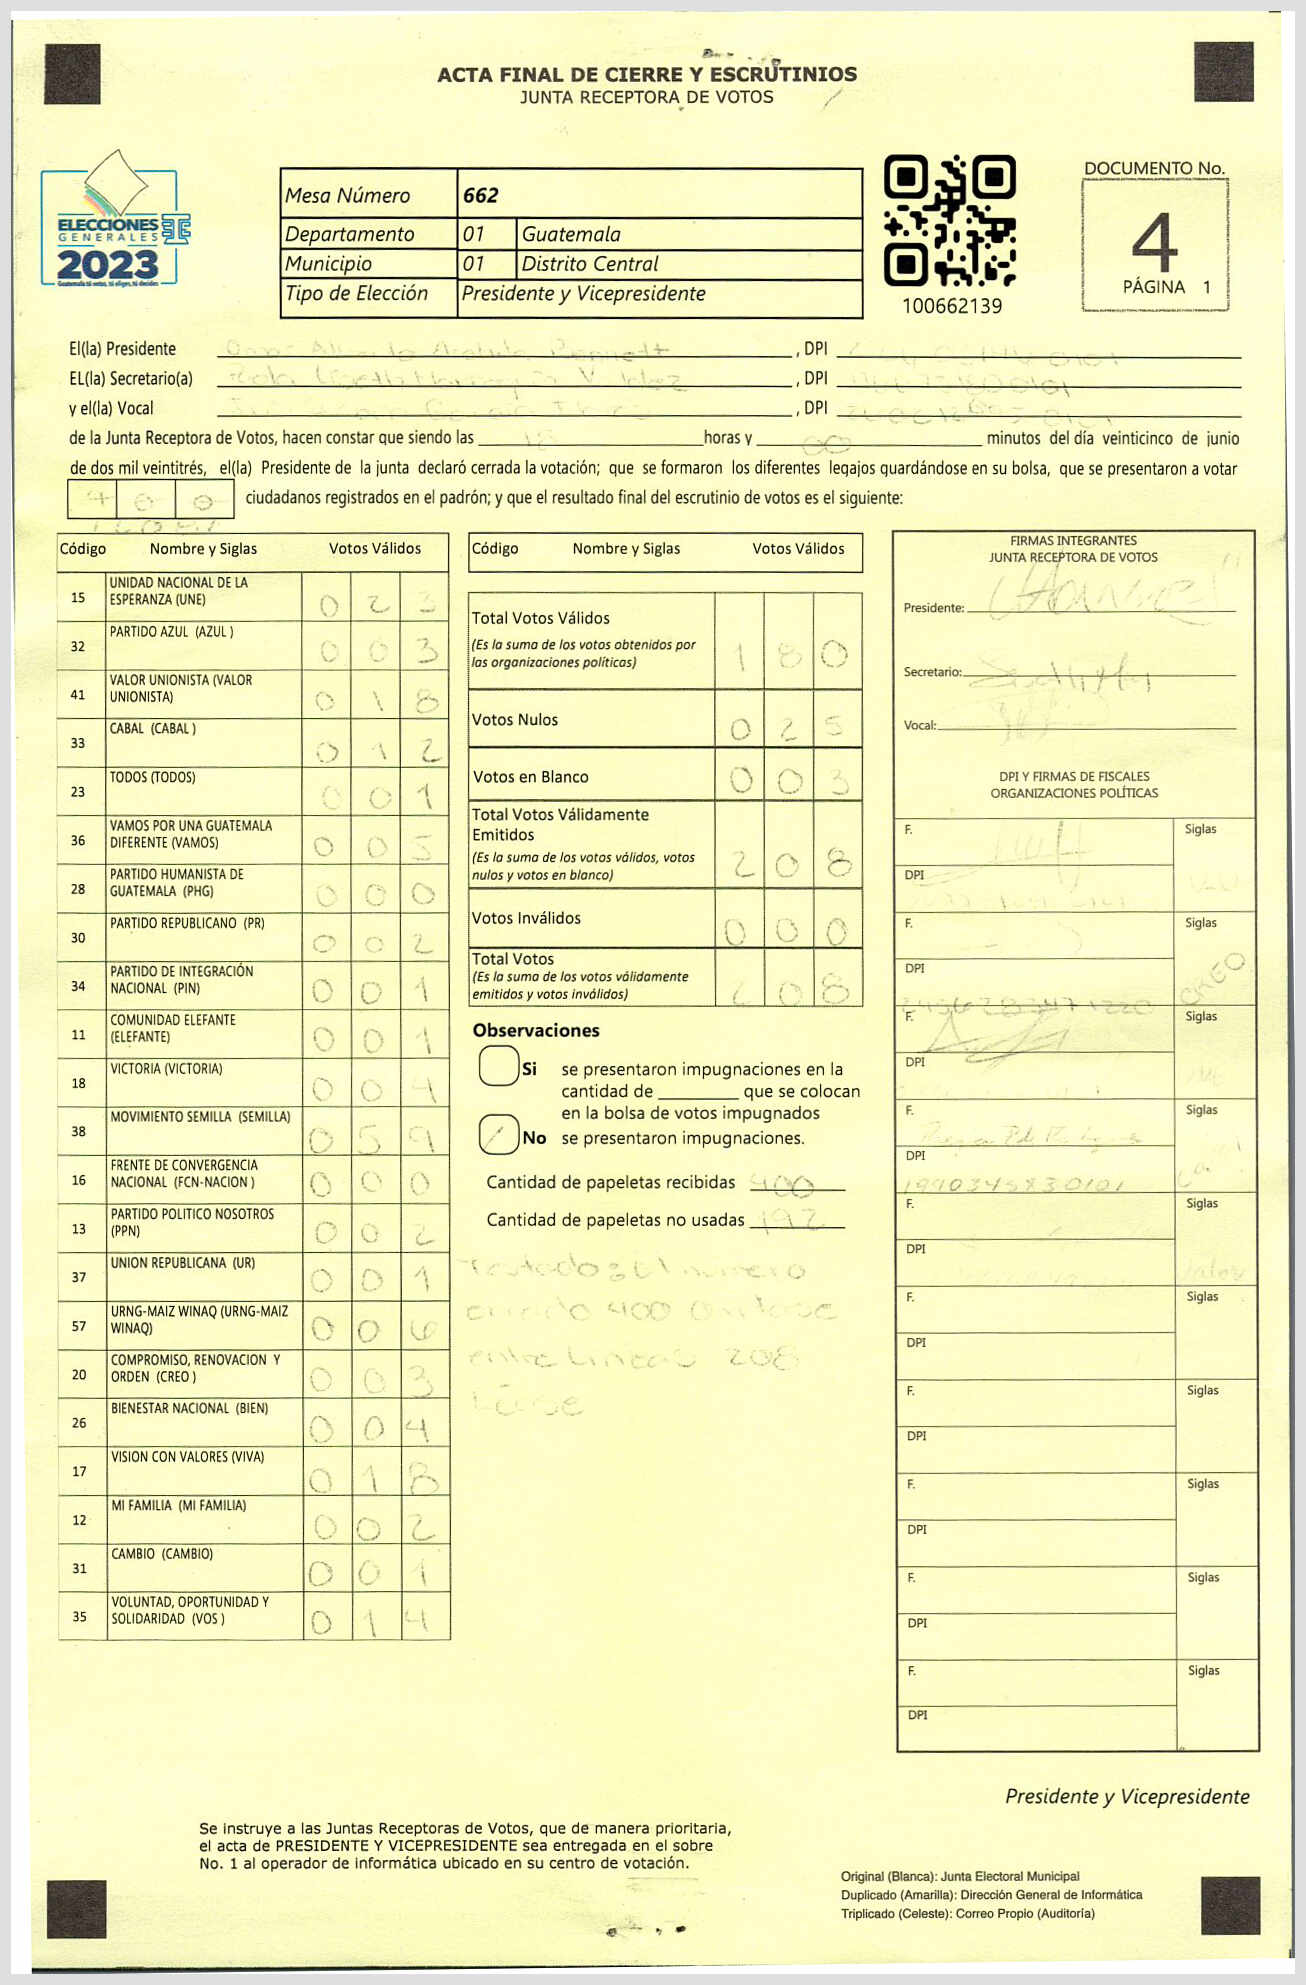 ACTA FINAL DE CIERRE Y ESCRUTINIOS
JUNTA RECEPTORA DE VOTOS
ELECCIONES
GENERALES
2023
Guatemala tú votas, tú eliges, tú decides
Mesa Número 662
Departamento 01 Guatemala
Municipio 01 Distrito Central
Tipo de Elección Presidente y Vicepresidente
100662139
DOCUMENTO No.
4
PÁGINA 1
El(la) Presidente , DPI
EL(la) Secretario(a) , DPI
y el(la) Vocal , DPI
de la Junta Receptora de Votos, hacen constar que siendo las 18 horas y 00 minutos del día veinticinco de junio
de dos mil veintitrés, el(la) Presidente de la junta declaró cerrada la votación; que se formaron los diferentes legajos guardándose en su bolsa, que se presentaron a votar
400 ciudadanos registrados en el padrón; y que el resultado final del escrutinio de votos es el siguiente:
Código Nombre y Siglas Votos Válidos
15 UNIDAD NACIONAL DE LA ESPERANZA (UNE) 0 2 3
32 PARTIDO AZUL (AZUL ) 0 0 3
41 VALOR UNIONISTA (VALOR UNIONISTA) 0 1 8
33 CABAL (CABAL ) 0 1 2
23 TODOS (TODOS) 0 0 1
36 VAMOS POR UNA GUATEMALA DIFERENTE (VAMOS) 0 0 5
28 PARTIDO HUMANISTA DE GUATEMALA (PHG) 0 0 0
30 PARTIDO REPUBLICANO (PR) 0 0 2
34 PARTIDO DE INTEGRACIÓN NACIONAL (PIN) 0 0 1
11 COMUNIDAD ELEFANTE (ELEFANTE) 0 0 1
18 VICTORIA (VICTORIA) 0 0 4
38 MOVIMIENTO SEMILLA (SEMILLA) 0 5 9
16 FRENTE DE CONVERGENCIA NACIONAL (FCN-NACION ) 0 0 0
13 PARTIDO POLITICO NOSOTROS (PPN) 0 0 2
37 UNION REPUBLICANA (UR) 0 0 1
57 URNG-MAIZ WINAQ (URNG-MAIZ WINAQ) 0 0 6
20 COMPROMISO, RENOVACION Y ORDEN (CREO ) 0 0 3
26 BIENESTAR NACIONAL (BIEN) 0 0 4
17 VISION CON VALORES (VIVA) 0 1 8
12 MI FAMILIA (MI FAMILIA) 0 0 2
31 CAMBIO (CAMBIO) 0 0 1
35 VOLUNTAD, OPORTUNIDAD Y SOLIDARIDAD (VOS ) 0 1 4
Código Nombre y Siglas Votos Válidos
Total Votos Válidos 1 8 0
(Es la suma de los votos obtenidos por
las organizaciones políticas)
Votos Nulos 0 2 5
Votos en Blanco 0 0 3
Total Votos Válidamente
Emitidos 2 0 8
(Es la suma de los votos válidos, votos
nulos y votos en blanco)
Votos Inválidos 0 0 0
Total Votos 2 0 8
(Es la suma de los votos válidamente
emitidos y votos inválidos)
Observaciones
Si se presentaron impugnaciones en la
cantidad de ________ que se colocan
en la bolsa de votos impugnados
No se presentaron impugnaciones.
Cantidad de papeletas recibidas 400
Cantidad de papeletas no usadas 192
Testado: El número
400 Omítase
entre Lineas 208
Léase
FIRMAS INTEGRANTES
JUNTA RECEPTORA DE VOTOS
Presidente:
Secretario:
Vocal:
DPI Y FIRMAS DE FISCALES
ORGANIZACIONES POLÍTICAS
F. Siglas
DPI
F. Siglas
DPI CREO
F. Siglas
DPI
F. Siglas
DPI
F. Siglas
DPI Valor
F. Siglas
DPI
F. Siglas
DPI
F. Siglas
DPI
F. Siglas
DPI
F. Siglas
DPI
Presidente y Vicepresidente
Se instruye a las Juntas Receptoras de Votos, que de manera prioritaria,
el acta de PRESIDENTE Y VICEPRESIDENTE sea entregada en el sobre
No. 1 al operador de informática ubicado en su centro de votación.
Original (Blanca): Junta Electoral Municipal
Duplicado (Amarilla): Dirección General de Informática
Triplicado (Celeste): Correo Propio (Auditoría)